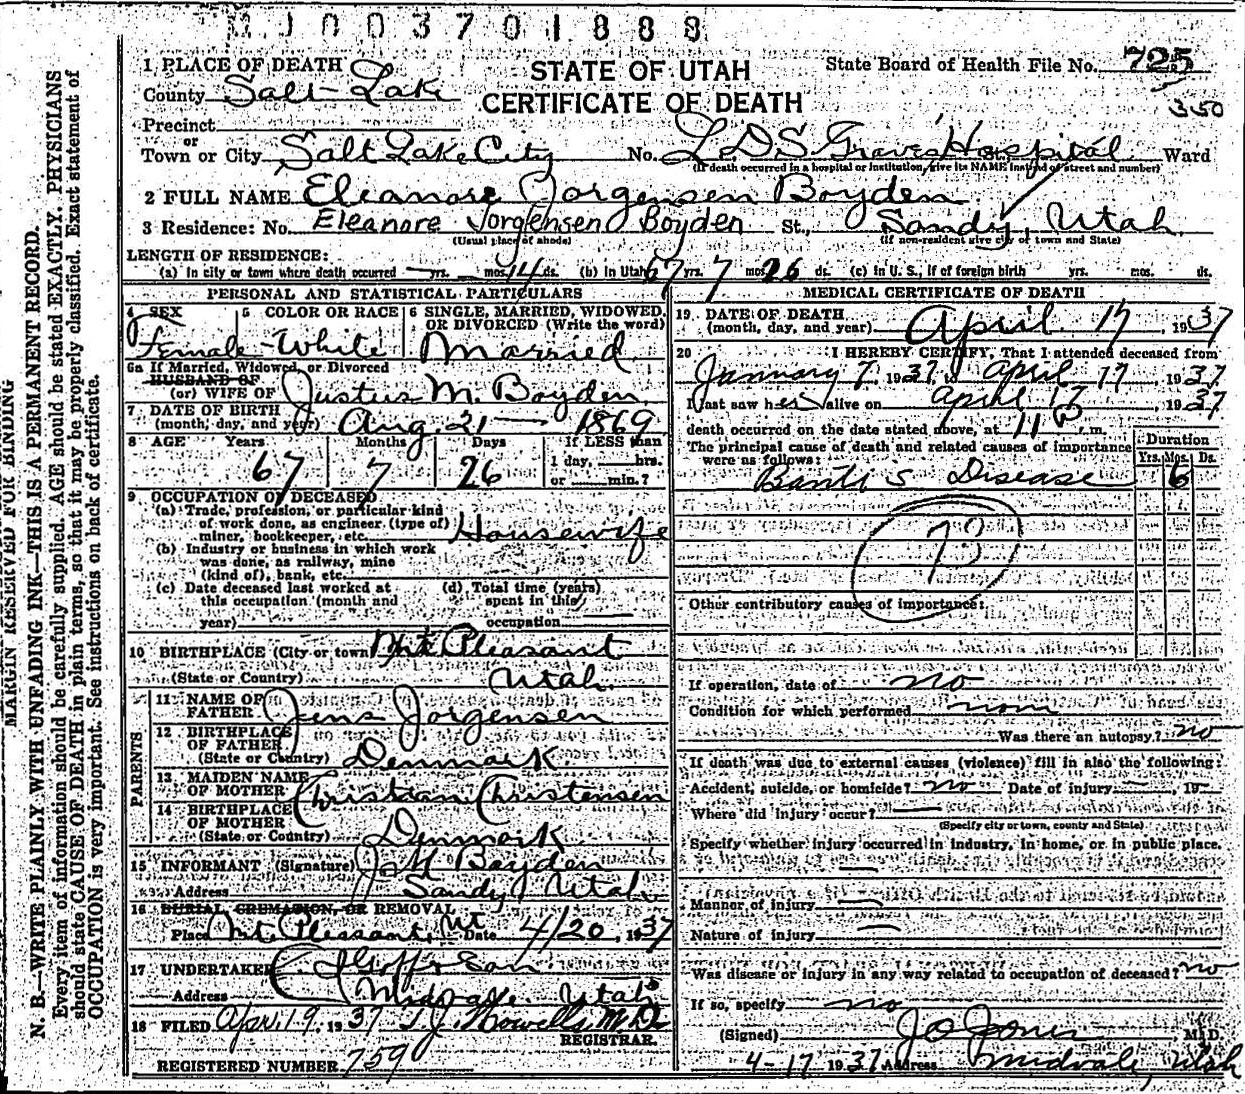 003701888
1 PLACE OF DEATH
County Salt Lake
Precinct
or
Town or City Salt Lake City
STATE OF UTAH
CERTIFICATE OF DEATH
State Board of Health File No. 725
350
No. L.D.S. Graves Hospital St. Ward
(If death occurred in a hospital or institution, give its NAME instead of street and number)
2 FULL NAME Eleanore Jorgensen Boyden
3 Residence: No. Eleanore Jorgensen Boyden St., Sandy, Utah
(Usual place of abode) (If non-resident give city or town and State)
LENGTH OF RESIDENCE:
(a) In city or town where death occurred — yrs. — mos. 14 ds. (b) In Utah 67 yrs. 7 mos. 26 ds. (c) In U. S., if of foreign birth yrs. mos. ds.
PERSONAL AND STATISTICAL PARTICULARS
4 SEX 5 COLOR OR RACE 6 SINGLE, MARRIED, WIDOWED, OR DIVORCED (Write the word)
Female White Married
6a If Married, Widowed, or Divorced
HUSBAND OF
(or) WIFE OF Justus M. Boyden
7 DATE OF BIRTH
(month, day, and year) Aug. 21 — 1869
8 AGE Years Months Days If LESS than
67 7 26 1 day, hrs.
or min.?
9 OCCUPATION OF DECEASED
(a) Trade, profession, or particular kind
of work done, as engineer (type of)
miner, bookkeeper, etc. Housewife
(b) Industry or business in which work
was done, as railway, mine
(kind of), bank, etc.
(c) Date deceased last worked at (d) Total time (years)
this occupation (month and spent in this
year) occupation
10 BIRTHPLACE (City or town) Mt. Pleasant
(State or Country) Utah
PARENTS
11 NAME OF
FATHER Jens Jorgensen
12 BIRTHPLACE
OF FATHER
(State or Country) Denmark
13 MAIDEN NAME
OF MOTHER Christian Christensen
14 BIRTHPLACE
OF MOTHER
(State or Country) Denmark
15 INFORMANT (Signature) J M Boyden
Address Sandy Utah
16 BURIAL, CREMATION, OR REMOVAL
Place Mt. Pleasant, Ut Date 4/20, 1937
17 UNDERTAKER Goff & Son
Address Midvale, Utah
18 FILED Apr. 19, 1937 T.J. Howells M.D.
REGISTRAR.
REGISTERED NUMBER 759
MEDICAL CERTIFICATE OF DEATH
19 DATE OF DEATH
(month, day, and year) April 17, 1937
20 I HEREBY CERTIFY, That I attended deceased from
January 7, 1937, to April 17, 1937
I last saw her alive on April 17, 1937
death occurred on the date stated above, at 11 P. m.
The principal cause of death and related causes of importance
were as follows:
Duration
Yrs. Mos. Ds.
Banti's Disease 6
73
Other contributory causes of importance:
If operation, date of no
Condition for which performed none
Was there an autopsy? no
If death was due to external causes (violence) fill in also the following:
Accident, suicide, or homicide? no Date of injury —, 19—
Where did injury occur? —
(Specify city or town, county and State)
Specify whether injury occurred in industry, in home, or in public place.
—
Manner of injury —
Nature of injury —
Was disease or injury in any way related to occupation of deceased? no
If so, specify no
(Signed) J O Jones M. D.
4-17 1937 Address Midvale, Utah
MARGIN RESERVED FOR BINDING
N. B.—WRITE PLAINLY WITH UNFADING INK—THIS IS A PERMANENT RECORD.
Every item of information should be carefully supplied. AGE should be stated EXACTLY. PHYSICIANS
should state CAUSE OF DEATH in plain terms, so that it may be properly classified. Exact statement of
OCCUPATION is very important. See instructions on back of certificate.